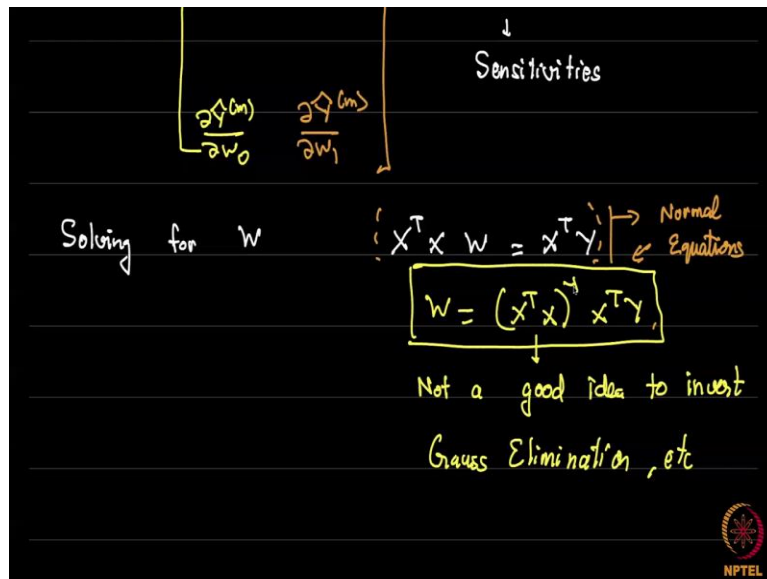 ↓
Sensitivities
∂Ŷ⁽ᵐ⁾/∂w₀ ∂Ŷ⁽ᵐ⁾/∂w₁
Solving for W XᵀX W = XᵀY → Normal
← Equations
W = (XᵀX)⁻¹ XᵀY
↓
Not a good idea to invert
Gauss Elimination, etc
NPTEL